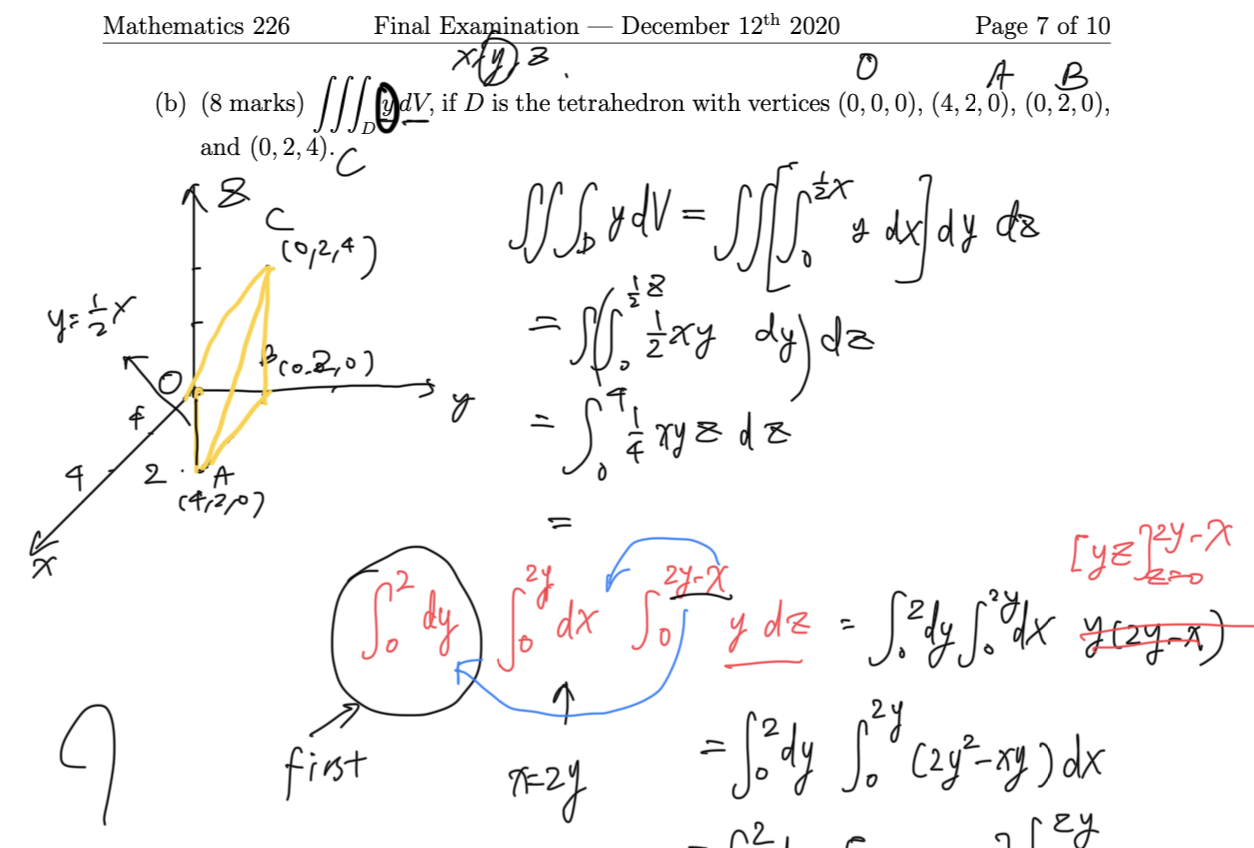 Mathematics 226 Final Examination — December 12th 2020 Page 7 of 10
x, y, z.
O A B
(b) (8 marks) ∭_D y dV, if D is the tetrahedron with vertices (0, 0, 0), (4, 2, 0), (0, 2, 0),
and (0, 2, 4).
C
z
C
(0,2,4)
y=½x
B(0,2,0)
O
y
4
4
2
A
(4,2,0)
x
∭_D y dV = ∬[∫_0^{½x} y dx] dy dz
= ∫(∫_0^{½z} ½xy dy) dz
= ∫_0^4 ¼ xyz dz
=
[yz]_{z=0}^{2y-x}
∫_0^2 dy ∫_0^{2y} dx ∫_0^{2y-x} y dz = ∫_0^2 dy ∫_0^{2y} dx y(2y-x)
first
x=2y
= ∫_0^2 dy ∫_0^{2y} (2y²-xy) dx